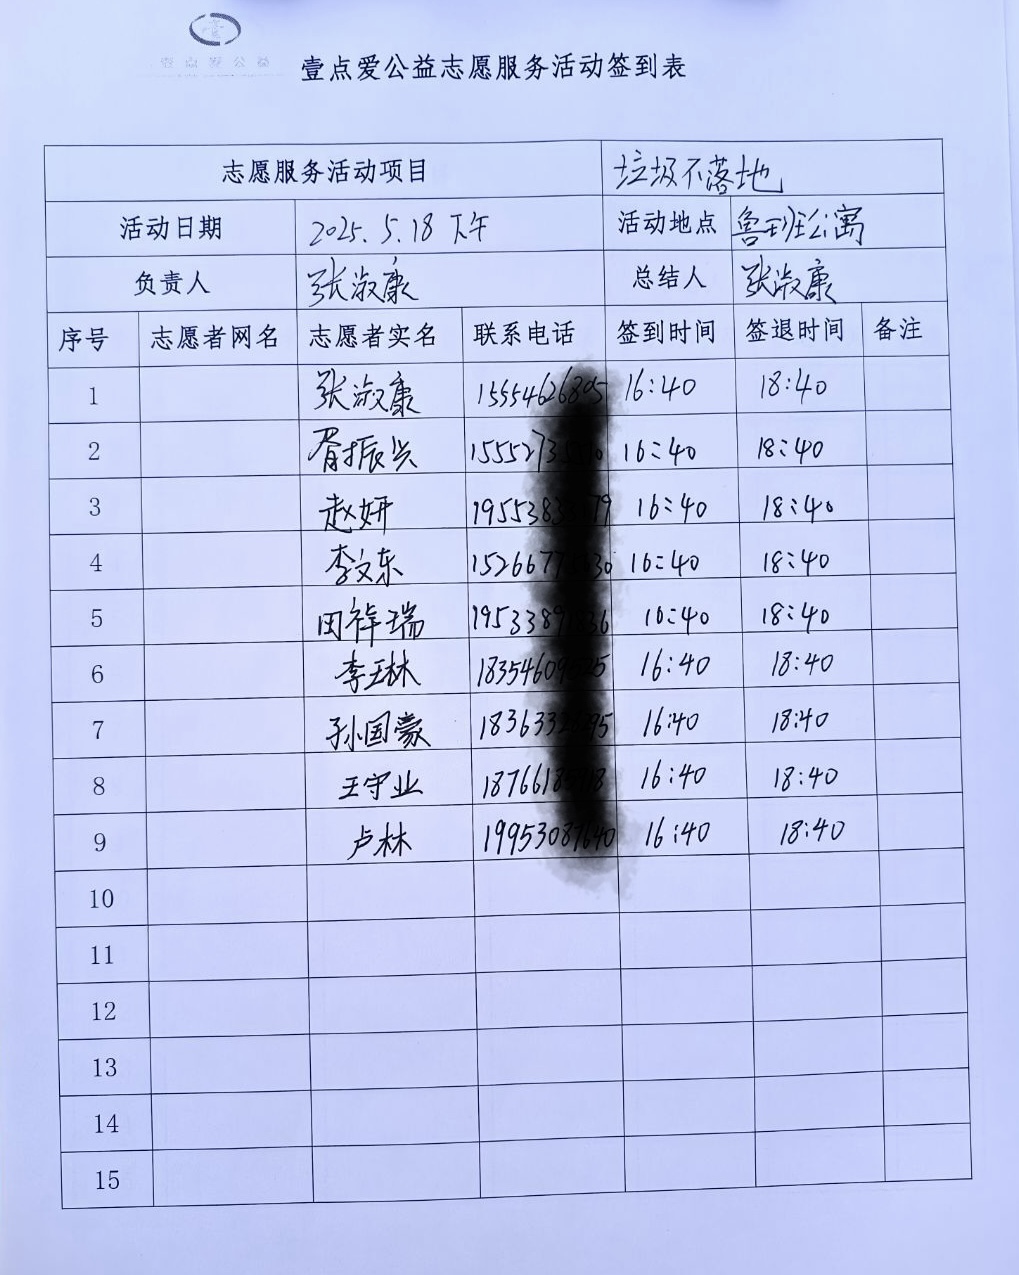 壹点爱公益
壹点爱公益志愿服务活动签到表
志愿服务活动项目 垃圾不落地
活动日期 2025.5.18 下午 活动地点 鲁班公寓
负责人 张淑康 总结人 张淑康
序号 志愿者网名 志愿者实名 联系电话 签到时间 签退时间 备注
1 张淑康 16:40 18:40
2 胥振兴 16:40 18:40
3 赵妍 16:40 18:40
4 李文东 16:40 18:40
5 田祥瑞 16:40 18:40
6 李玉林 16:40 18:40
7 孙国豪 16:40 18:40
8 王守业 16:40 18:40
9 卢林 16:40 18:40
10
11
12
13
14
15